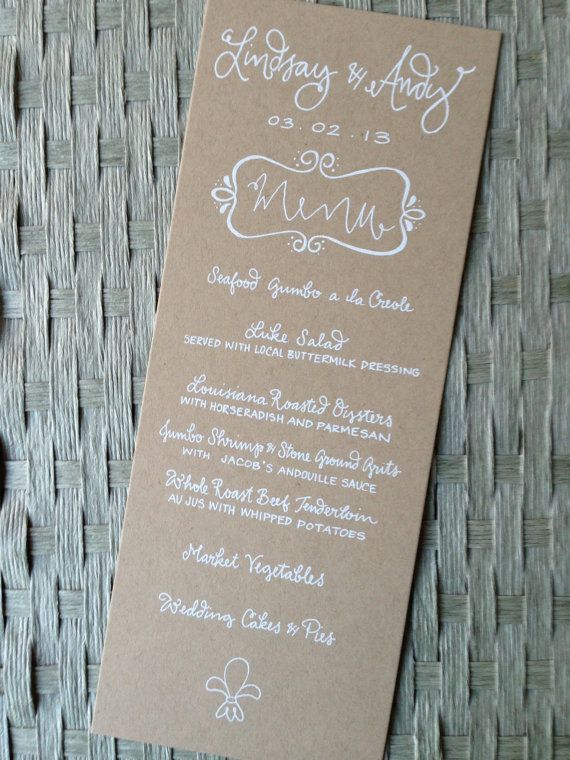 Lindsay & Andy
03.02.13
Menu
Seafood Gumbo a la Creole
Luke Salad
SERVED WITH LOCAL BUTTERMILK DRESSING
Louisiana Roasted Oysters
WITH HORSERADISH AND PARMESAN
Jumbo Shrimp & Stone Ground Grits
WITH JACOB'S ANDOUILLE SAUCE
Whole Roast Beef Tenderloin
AU JUS WITH WHIPPED POTATOES
Market Vegetables
Wedding Cakes & Pies